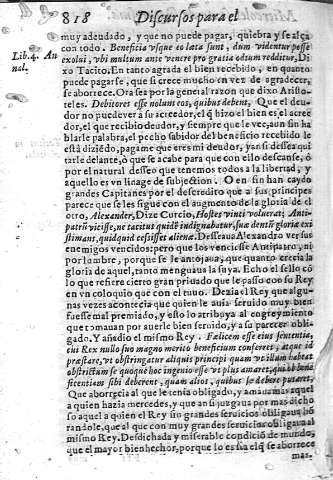 818 Discursos para el
muy adeudado, y que no puede pagar, quiebra y se alça
con todo. Beneficia vsque eo læta sunt, dum videntur posse
Lib. 4. An
nal.
exolui, vbi multum ante venere pro gratia odium redditur, Di
xo Tacito. En tanto agrada el bien recebido, en quanto
puede pagarse, que si crece mucho en vez de agradecer,
se aborrece. Ora sea por la general razon que dixo Aristo
teles. Debitores esse nolumus eos, quibus debent, Que el deu-
dor no puede ver a su acreedor, el q̃ hizo el bien es el acree
dor, el que recibio deudor, y siempre que le vee, aun sin ha
blarle palabra, el pecho sabidor del beneficio recebido le
està diziẽdo, pagame que eres mi deudor, y assi dessea qui
tarle delante, ò que se acabe para que con ello descanse, ò
por el natural desseo que tenemos todos a la libertad, y
aquello es vn linage de subjection. O en sin han caydo
grandes Capitanes por el descredito que a sus principes
parece que se les sigue con el augmento de la gloria de el
otro, Alexander, Dize Curcio, Hostes vinci voluerat; Anti-
patrũ vicisse, ne tacitus quidẽ indignabatur, suæ demtũ gloriæ exi
stimans, quidquid cessisset alienæ. Desseaua Alexandro ver sus
enemigos vencidos: pero que los venciesse Antipatro, ni
por lumbre, porque se le antojaua, que quanto crecia la
gloria de aquel, tanto menguaua la suya. Echo el sello cõ
lo que refiere cierto gran priuado que le passò con su Rey
en vn coloquio que con el tuuo. Dezia el Rey que algu-
nas vezes acontecia que quien le auia seruido muy bien
fuesse mal premiado, y esto lo atribuya al engreymiento
que tomauan por auerle bien seruido, y a su parecer obliga-
do. Y añedio el mismo Rey. Felicem esse eius sententia,
cui Rex nullo suo magno merito beneficium conferret, atque id
præstare, vt obstringatur aliquis principi quam vt illum habeat
obstrictum se quoque hoc ingenio esse vt plus amaret, qui ob bene
ficentiam sibi deberent, quam alios, quibus se debere putaret,
Que aborrecia al que le tenia obligado, y amaua mas aquel
a quien hazia mercedes, y que an su juzgaua por mas dicho
so aquel a quien el Rey sin grandes seruicios obligaua hõ
randole, que al que con muy grandes seruicios obligaua al
mismo Rey. Desdichada y miserable condiciõ de mundo,
que el mayor bienhechor, porque lo es haq̃ se aborrece
mas.